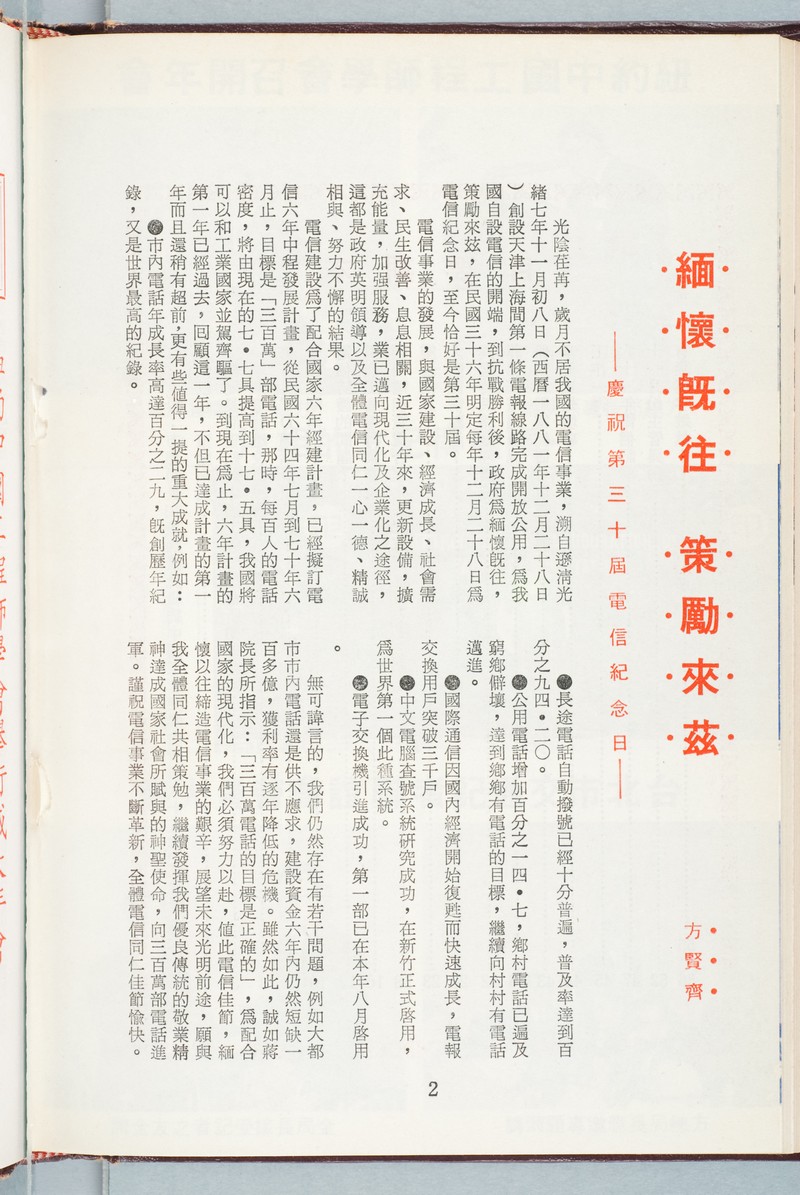 緬懷既往　策勵來茲
——慶祝第三十屆電信紀念日——
方賢齊
光陰荏苒，歲月不居我國的電信事業，溯自遜清光
緒七年十一月初八日（西曆一八八一年十二月二十八日
）創設天津上海間第一條電報線路完成開放公用，為我
國自設電信的開端，到抗戰勝利後，政府為緬懷既往，
策勵來茲，在民國三十六年明定每年十二月二十八日為
電信紀念日，至今恰好是第三十屆。
電信事業的發展，與國家建設、經濟成長、社會需
求、民生改善、息息相關，近三十年來，更新設備，擴
充能量，加强服務，業已邁向現代化及企業化之途徑，
這都是政府英明領導以及全體電信同仁一心一德、精誠
相與、努力不懈的結果。
電信建設為了配合國家六年經建計畫，已經擬訂電
信六年中程發展計畫，從民國六十四年七月到七十年六
月止，目標是「三百萬」部電話，那時，每百人的電話
密度，將由現在的七•七具提高到十七•五具，我國將
可以和工業國家並駕齊驅了。到現在為止，六年計畫的
第一年已經過去，回顧這一年，不但已達成計畫的第一
年而且還稍有超前，更有些値得一提的重大成就，例如：
●市內電話年成長率高達百分之二九，既創歷年紀
錄，又是世界最高的紀錄。
●長途電話自動撥號已經十分普遍，普及率達到百
分之九四•二〇。
●公用電話增加百分之一四•七，鄉村電話已遍及
窮鄉僻壤，達到鄉鄉有電話的目標，繼續向村村有電話
邁進。
●國際通信因國內經濟開始復甦而快速成長，電報
交換用戶突破三千戶。
●中文電腦查號系統研究成功，在新竹正式啓用，
為世界第一個此種系統。
●電子交換機引進成功，第一部已在本年八月啓用
。
無可諱言的，我們仍然存在有若干問題，例如大都
市市內電話還是供不應求，建設資金六年內仍然短缺一
百多億，獲利率有逐年降低的危機。雖然如此，誠如蔣
院長所指示：「三百萬電話的目標是正確的」，為配合
國家的現代化，我們必須努力以赴，値此電信佳節，緬
懷以往締造電信事業的艱辛，展望未來光明前途，願與
我全體同仁共相策勉，繼續發揮我們優良傳統的敬業精
神達成國家社會所賦與的神聖使命，向三百萬部電話進
軍。謹祝電信事業不斷革新，全體電信同仁佳節愉快。
2